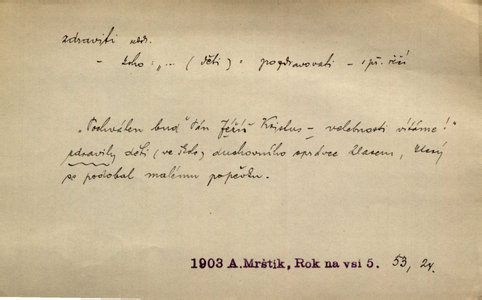 zdraviti ned.
- koho: „... ( děti) " pozdravovati - př. řeči
„Pochválen buď Pán Ježíš Kristus - velebnosti vítáme!"
zdravily děti (ve sboru) duchovního správce hlasem, který
se podobal malému popěvku.
1903 A. Mrštík, Rok na vsi 5. 53, 24.